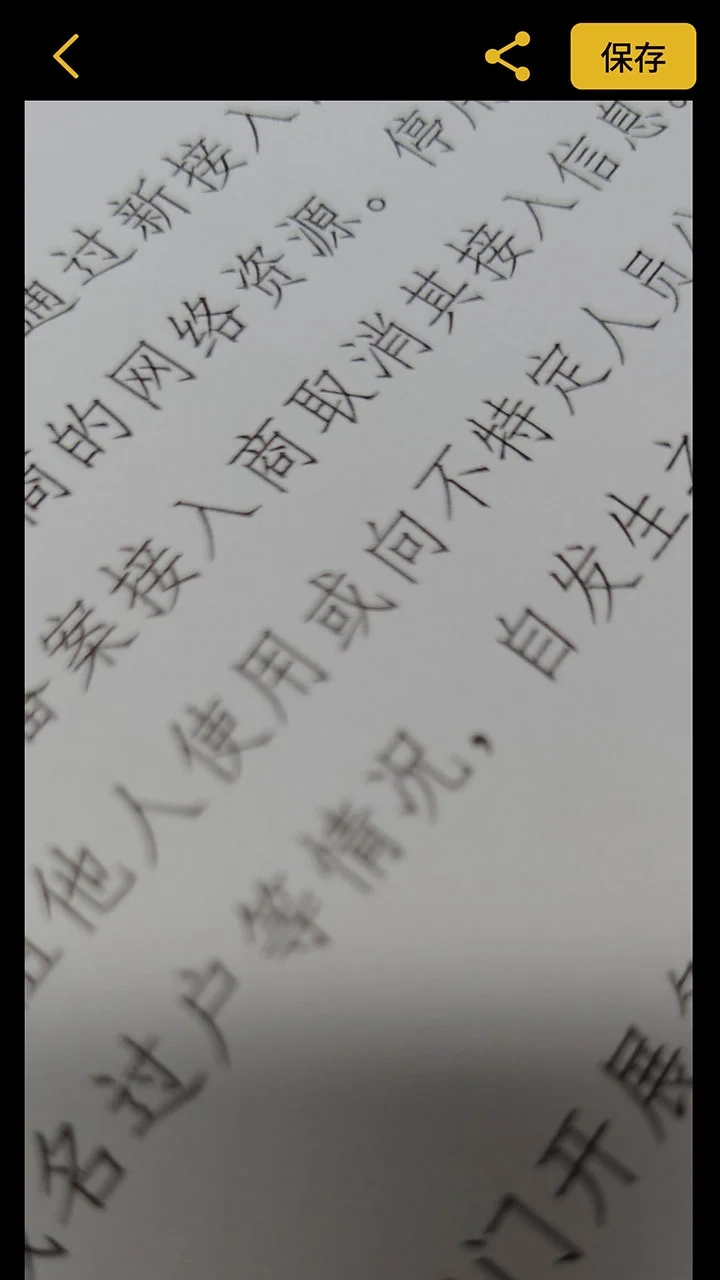 保存
通过新接入
商的网络资源。停用
备案接入商取消其接入信息。
他人使用或向不特定人员
名过户等情况，自发生之
门开展